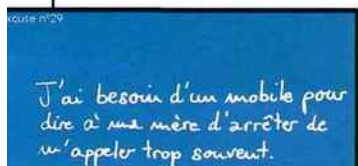 xcuse n°29
J'ai besoin d'un mobile pour
dire à ma mère d'arrêter de
m'appeler trop souvent.